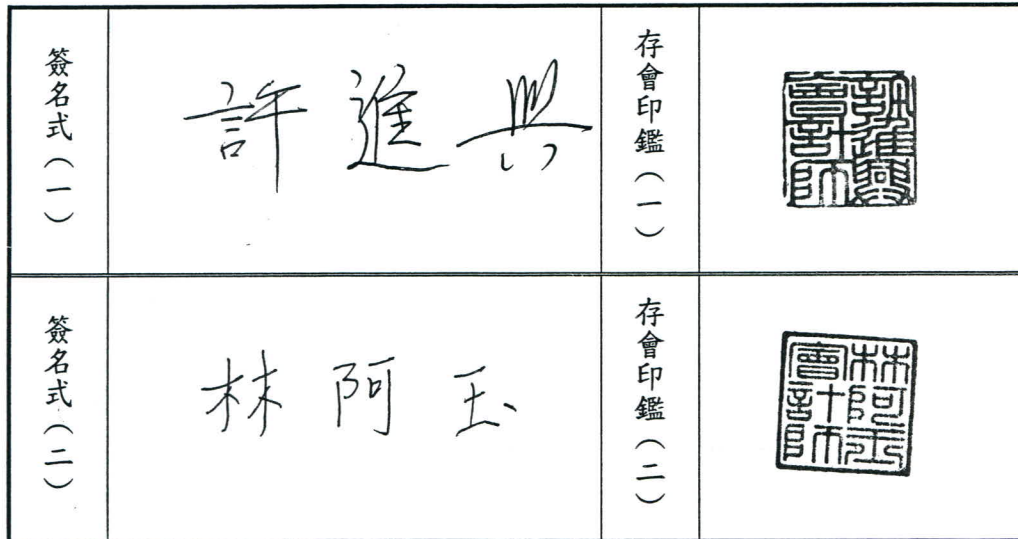 簽名式(一)
許進興
存會印鑑(一)
許進興
會計師
簽名式(二)
林阿玉
存會印鑑(二)
林阿玉
會計師